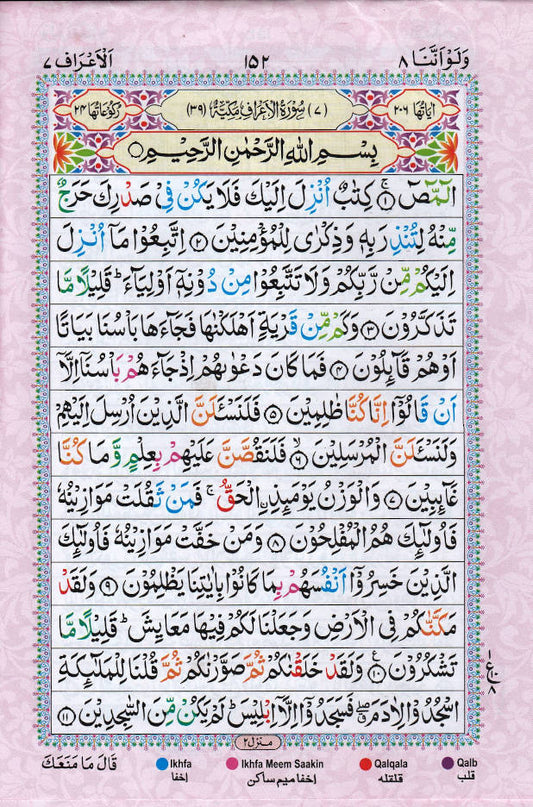 وَلَوْ اَنَّنَا ٨
١٥٢
اَلْاَعْرَاف ٧
اٰيَاتُهَا ٢٠٦
(٧) سُوْرَةُ الْاَعْرَافِ مَكِّيَّةٌ (٣٩)
رُكُوْعَاتُهَا ٢٤
بِسْمِ اللّٰهِ الرَّحْمٰنِ الرَّحِيْمِ
الٓمّٓصٓ ۚ ١ كِتٰبٌ اُنْزِلَ اِلَيْكَ فَلَا يَكُنْ فِيْ صَدْرِكَ حَرَجٌ
مِّنْهُ لِتُنْذِرَ بِهٖ وَذِكْرٰى لِلْمُؤْمِنِيْنَ ٢ اِتَّبِعُوْا مَاۤ اُنْزِلَ
اِلَيْكُمْ مِّنْ رَّبِّكُمْ وَلَا تَتَّبِعُوْا مِنْ دُوْنِهٖۤ اَوْلِيَآءَ ؕ قَلِيْلًا مَّا
تَذَكَّرُوْنَ ٣ وَكَمْ مِّنْ قَرْيَةٍ اَهْلَكْنٰهَا فَجَآءَهَا بَاْسُنَا بَيَاتًا
اَوْ هُمْ قَآئِلُوْنَ ٤ فَمَا كَانَ دَعْوٰىهُمْ اِذْ جَآءَهُمْ بَاْسُنَاۤ اِلَّاۤ
اَنْ قَالُوْۤا اِنَّا كُنَّا ظٰلِمِيْنَ ٥ فَلَنَسْـَٔلَنَّ الَّذِيْنَ اُرْسِلَ اِلَيْهِمْ
وَلَنَسْـَٔلَنَّ الْمُرْسَلِيْنَ ۙ ٦ فَلَنَقُصَّنَّ عَلَيْهِمْ بِعِلْمٍ وَّمَا كُنَّا
غَآئِبِيْنَ ٧ وَالْوَزْنُ يَوْمَئِذِ ِ۟الْحَقُّ ۚ فَمَنْ ثَقُلَتْ مَوَازِيْنُهٗ
فَاُولٰٓئِكَ هُمُ الْمُفْلِحُوْنَ ٨ وَمَنْ خَفَّتْ مَوَازِيْنُهٗ فَاُولٰٓئِكَ
الَّذِيْنَ خَسِرُوْۤا اَنْفُسَهُمْ بِمَا كَانُوْا بِاٰيٰتِنَا يَظْلِمُوْنَ ٩ وَلَقَدْ
مَكَّنّٰكُمْ فِي الْاَرْضِ وَجَعَلْنَا لَكُمْ فِيْهَا مَعَايِشَ ؕ قَلِيْلًا مَّا
تَشْكُرُوْنَ ١٠ وَلَقَدْ خَلَقْنٰكُمْ ثُمَّ صَوَّرْنٰكُمْ ثُمَّ قُلْنَا لِلْمَلٰٓئِكَةِ
اسْجُدُوْا لِاٰدَمَ ۖ فَسَجَدُوْۤا اِلَّاۤ اِبْلِيْسَ ؕ لَمْ يَكُنْ مِّنَ السّٰجِدِيْنَ ١١
١
ع
١٠
٨
منزل ٢
قَالَ مَا مَنَعَكَ
Ikhfa
اخفا
Ikhfa Meem Saakin
اخفا میم ساکن
Qalqala
قلقله
Qalb
قلب